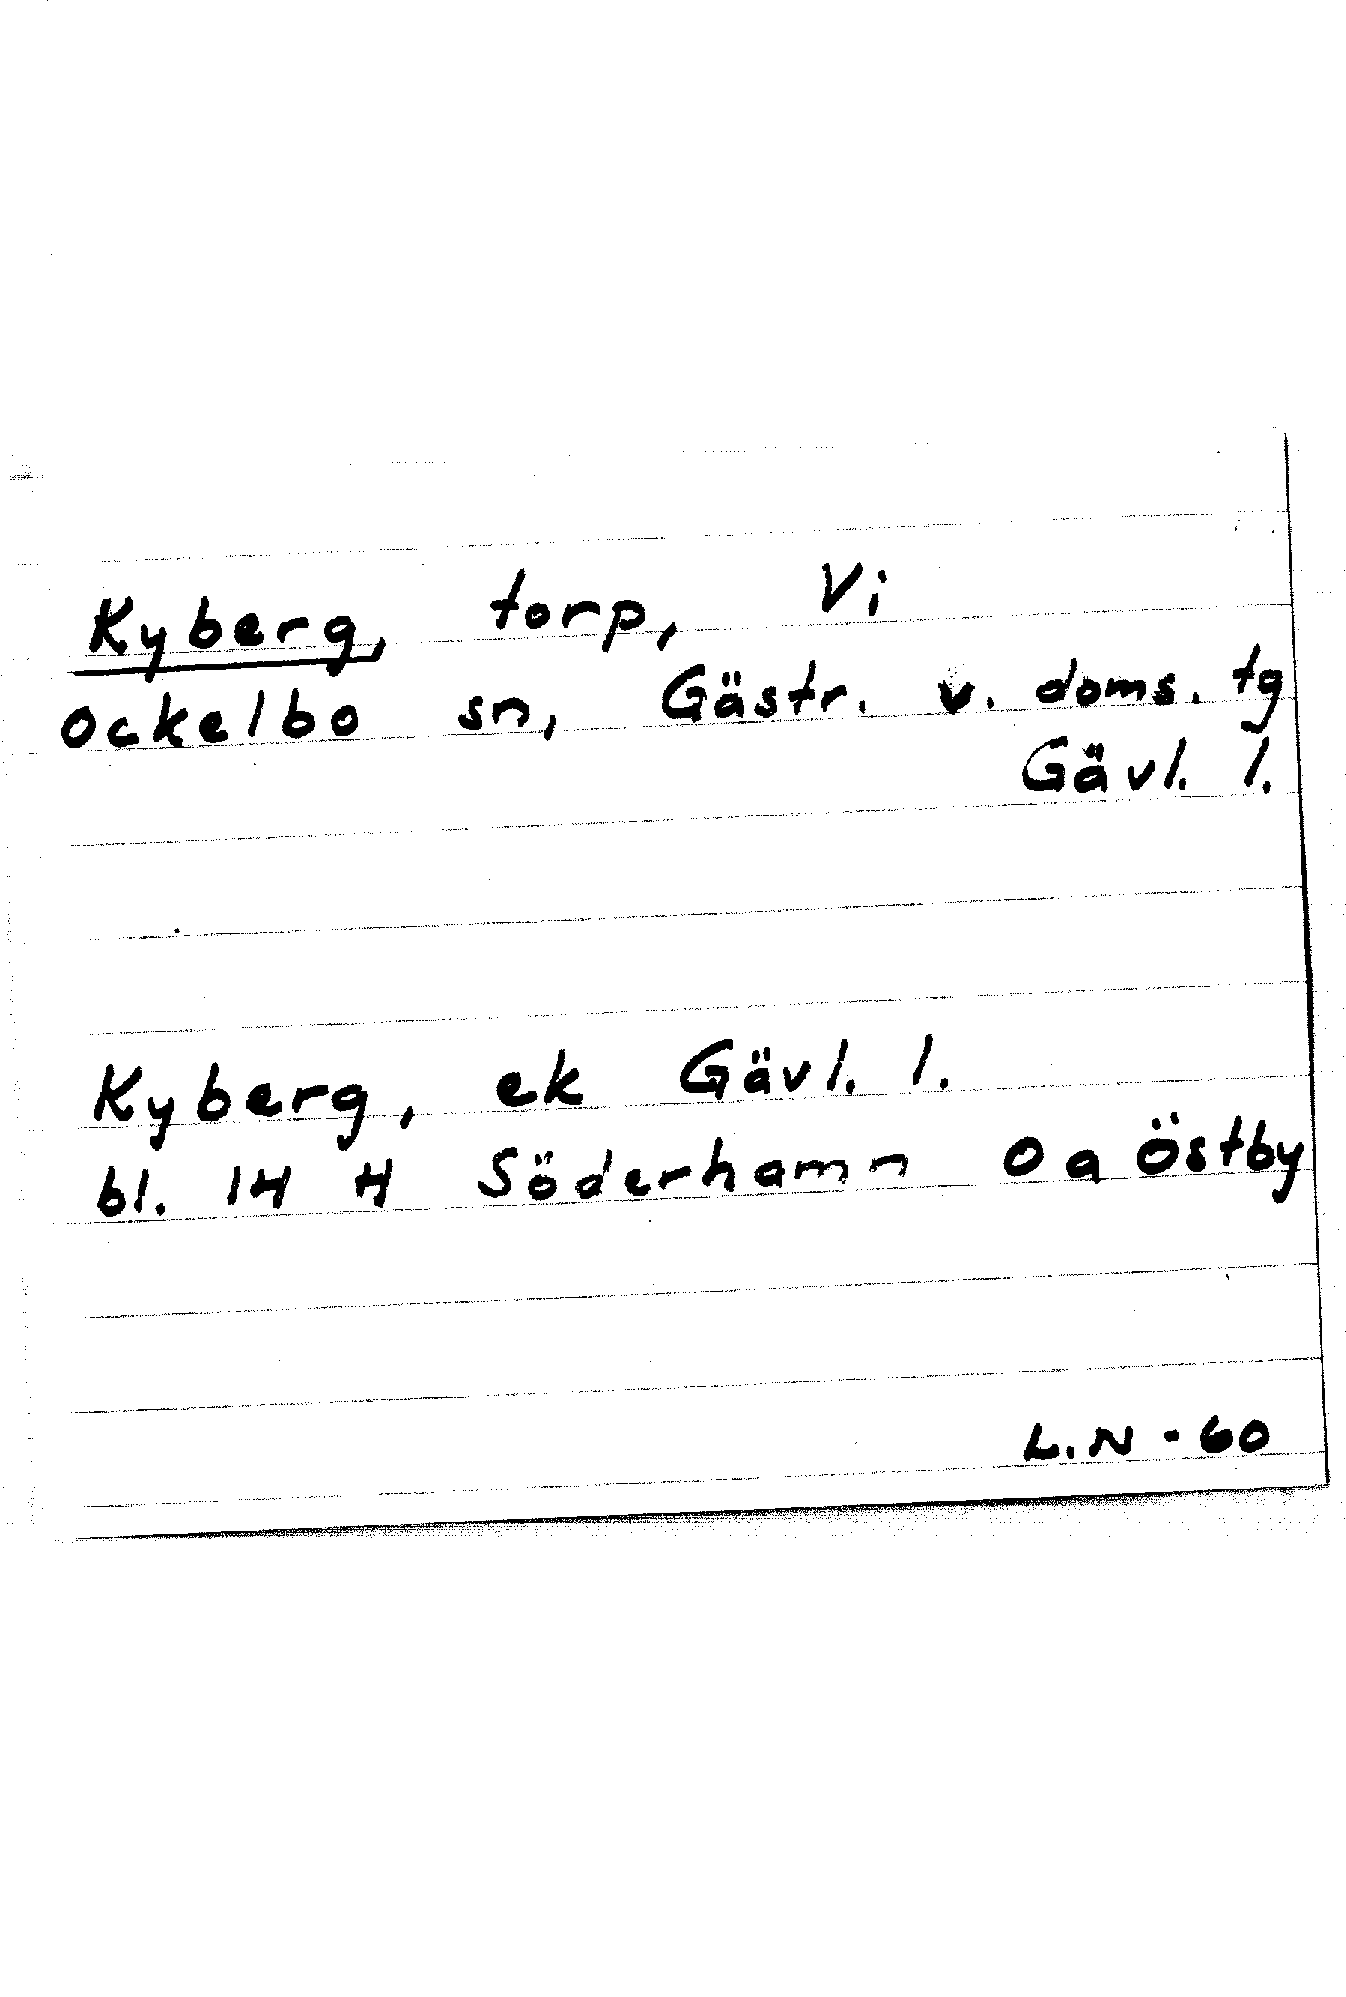 Kyberg, torp, Vi
Ockelbo sn, Gästr. v. doms. tg
Gävl. l.
Kyberg, ek Gävl. l.
bl. 14 H Söderhamn 0 a Östby
L.N - 60